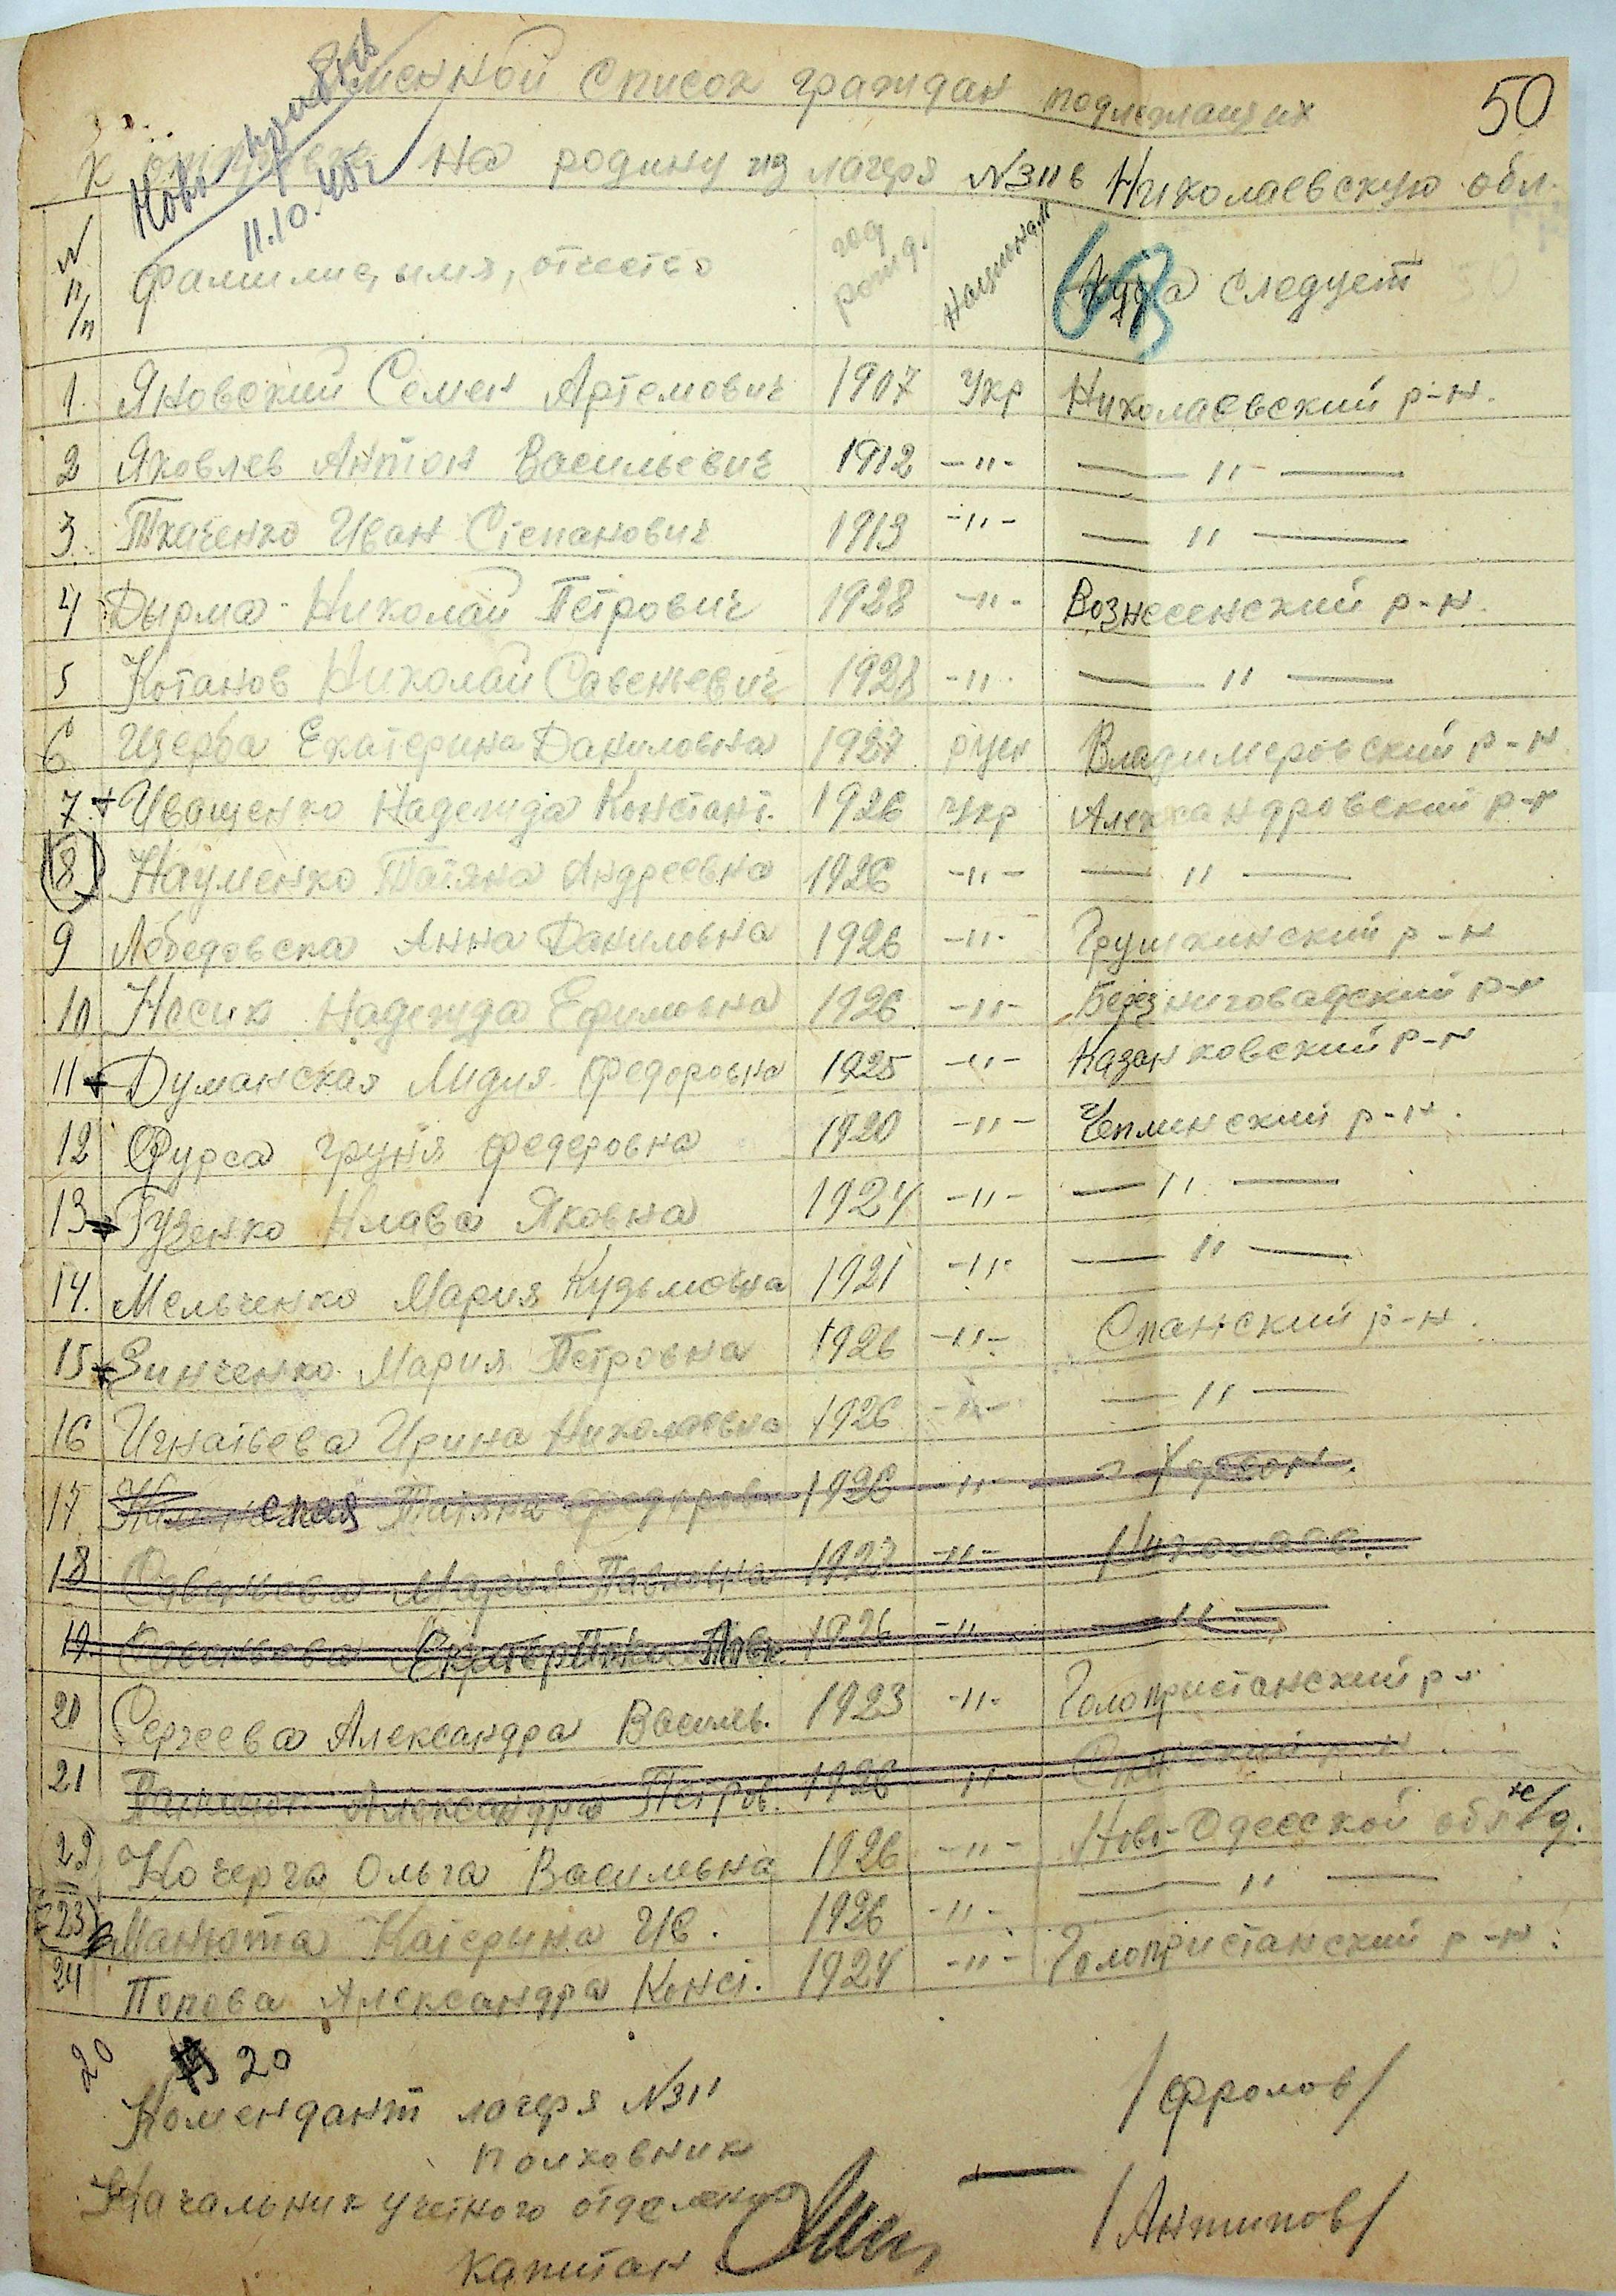 Именной список граждан подлежащих
50
к отправке на родину из лагеря №311 в Николаевскую обл.
11.10.45г
N п/п фамилие, имя, отчество год рожд. Национал. Куда следует
68
1. Яновский Семен Артемович 1907 Укр Николаевский р-н.
2 Яковлев Антон Васильевич 1912 -"- — " —
3. Ткаченко Иван Степанович 1913 -"- — " —
4 Дырма Николай Петрович 1928 -"- Вознесенский р-н.
5 Котанов Николай Савеньевич 1928 -"- — " —
6 Щерба Екатерина Даниловна 1927 руск Владимеровский р-н
7.+ Иващенко Надежда Констант. 1926 Укр Александровский р-н
(8) Науменко Татяна Андреевна 1926 -"- — " —
9 Лебедовска Анна Даниловна 1926 -"- р-н
10 Носик Надежда Ефимовна 1926 -"- Березниговадский р-н
11+ Думанская Лидия Федоровна 1925 -"- Казанковский р-н
12 Фурса Груня Федоровна 1920 -"- Чеплинский р-н.
13+ Гузенко Клава Яковна 1924 -"- — " —
14. Мельченко Мария Кузьмовна 1921 -"- — " —
15+ Зинченко Мария Петровна 1926 -"- Спанский р-н.
16 Игнатьева Ирина Николаевна 1926 -"- — " —
17. Татяна Федоров. 1926 " г Херсон.
18 Мария Павловна 1927 -"- Николаев.
19. 1926 -"- — " —
20 Сергеева Александра Василь. 1923 -"- Голопристанский р-н
21 Александра Петров. 1926 -"- р-н.
22 Кочерга Ольга Васильвна 1926 -"- Ново-Одесской обл
(23) Манюта Катерина Ив. 1926 -"- — " —
24 Попова Александра Конст. 1924 -"- Голопристанский р-н.
20 20
Комендант лагеря №311
полковник /Фролов/
Начальник учетного отделения
капитан /Антипов/